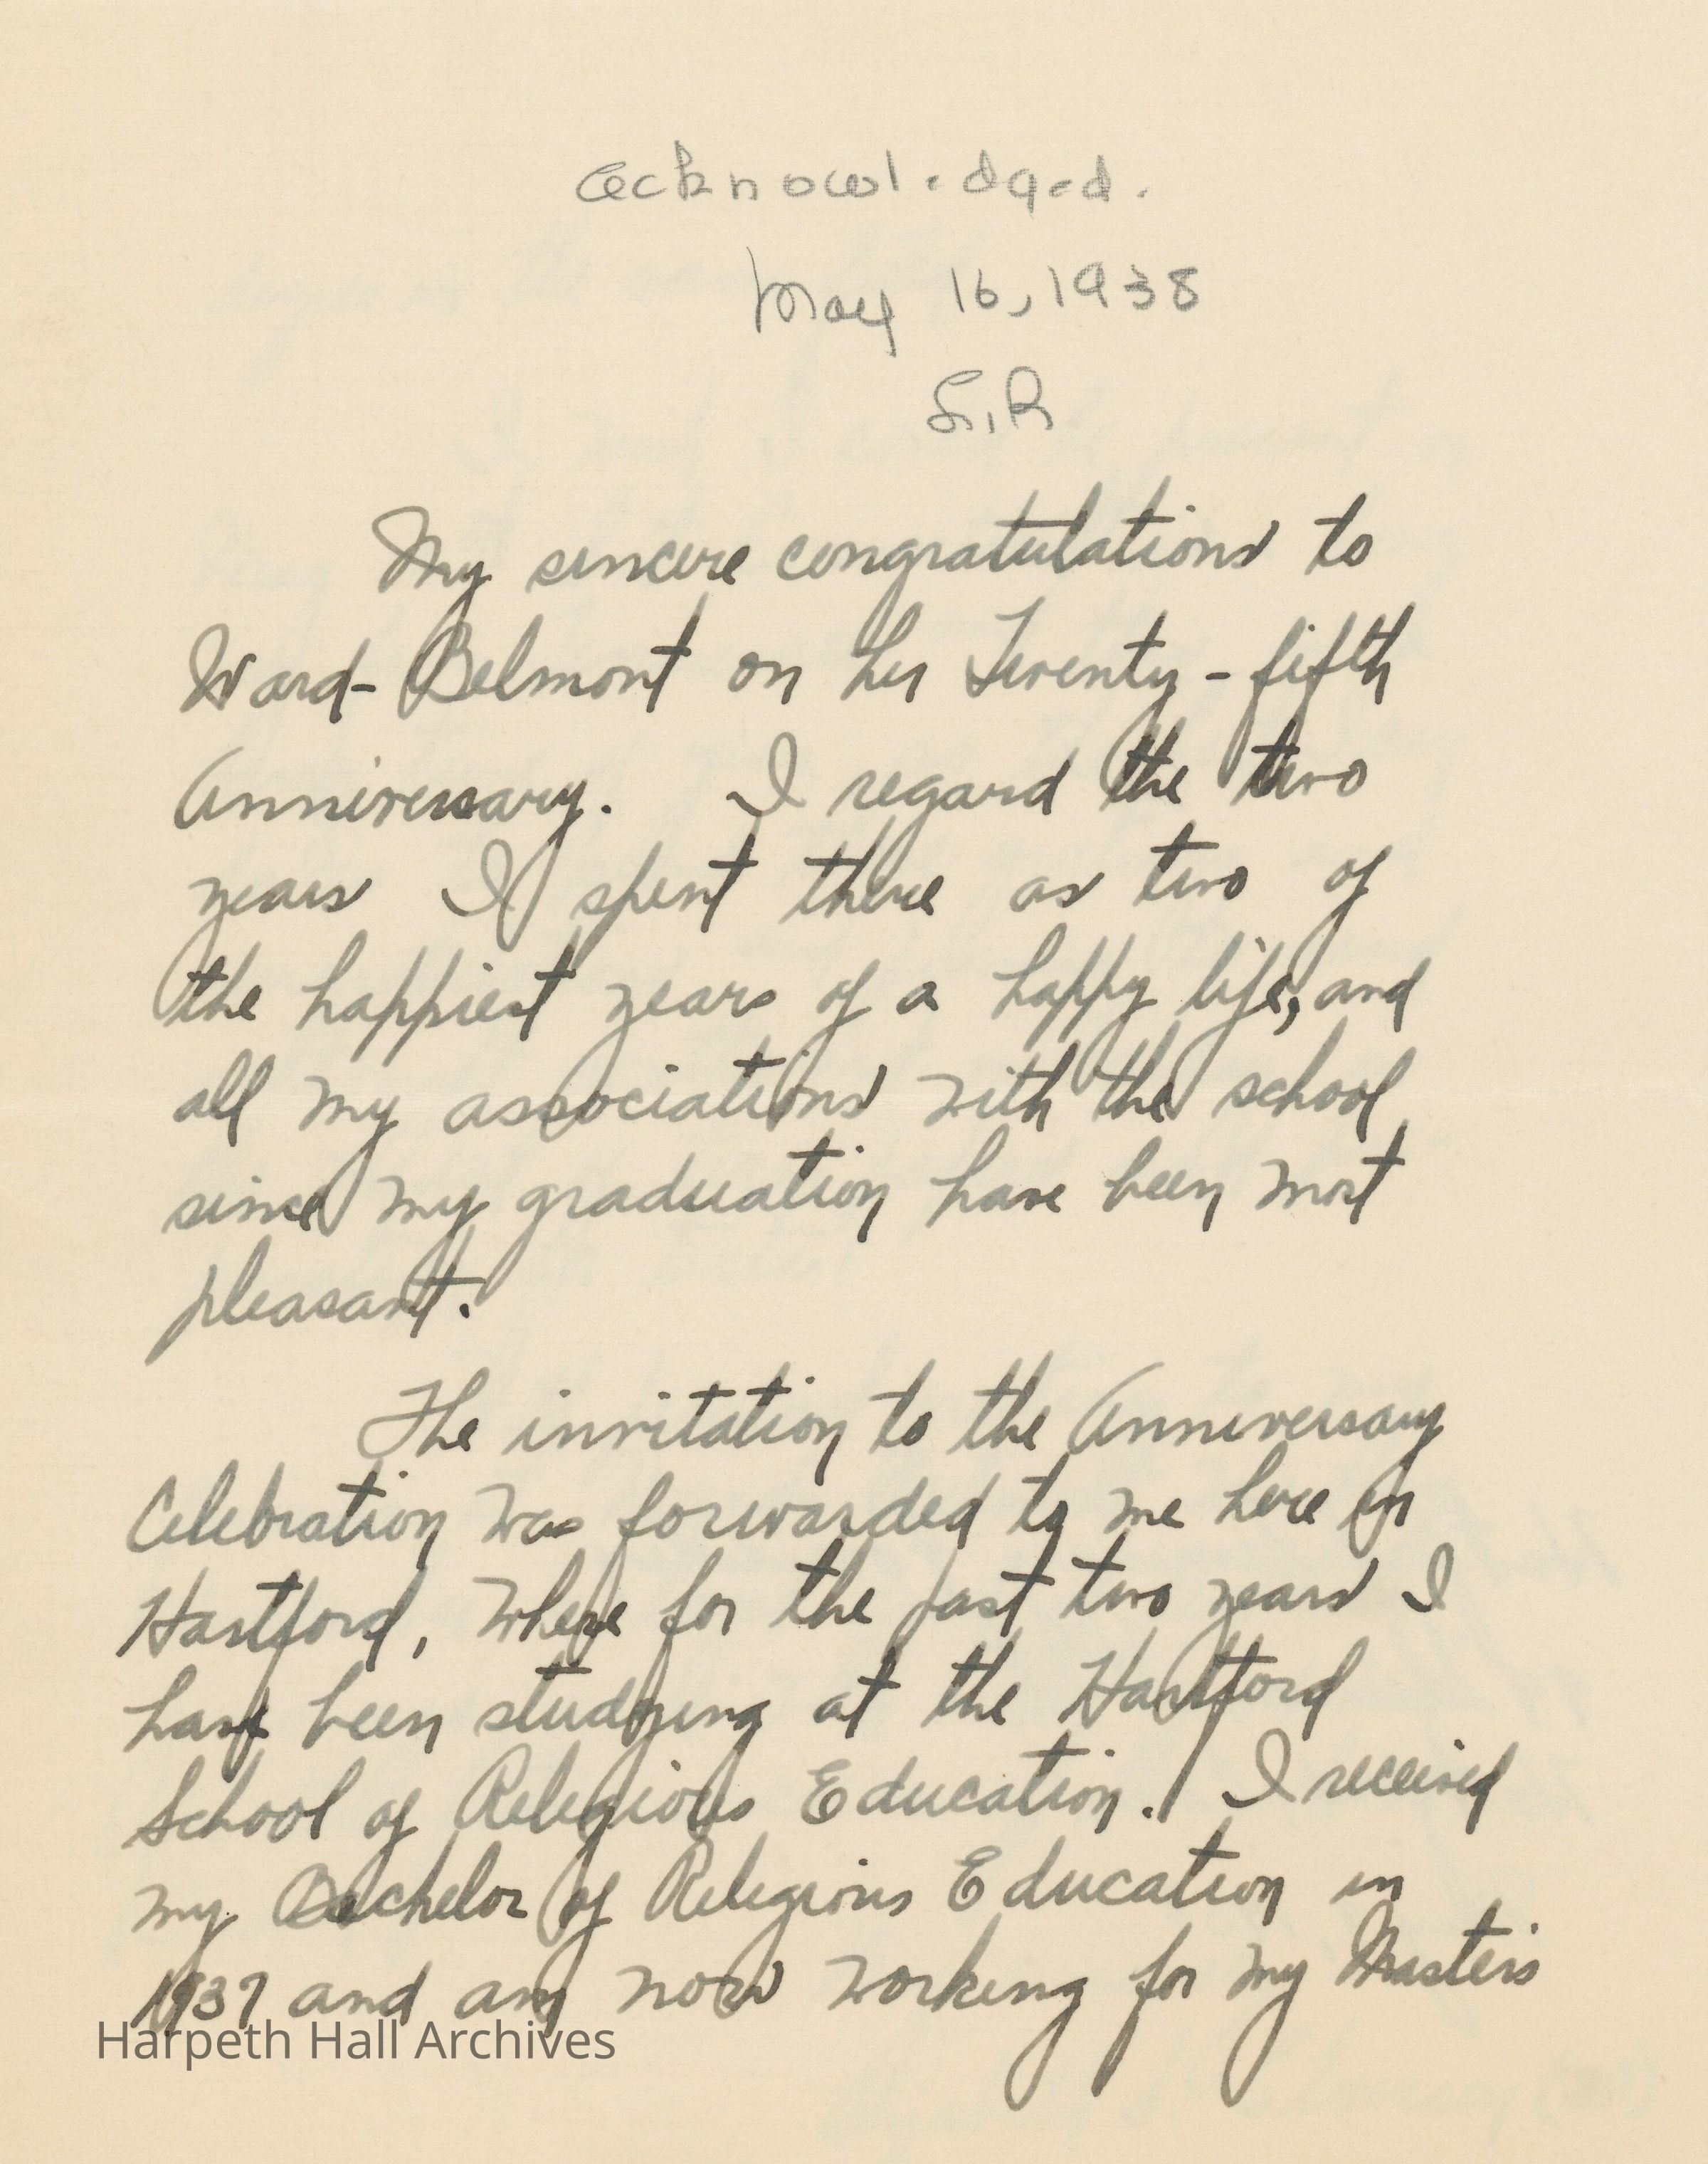 acknowledged.
May 16, 1938
S.R
My sincere congratulations to
Ward-Belmont on her Twenty-fifth
Anniversary. I regard the two
years I spent there as two of
the happiest years of a happy life, and
all my associations with the school
since my graduation have been most
pleasant.
The invitation to the Anniversary
Celebration was forwarded to me here in
Hartford, where for the past two years I
have been studying at the Hartford
School of Religious Education. I received
my Bachelor of Religious Education in
1937 and am now working for my Masters
Harpeth Hall Archives